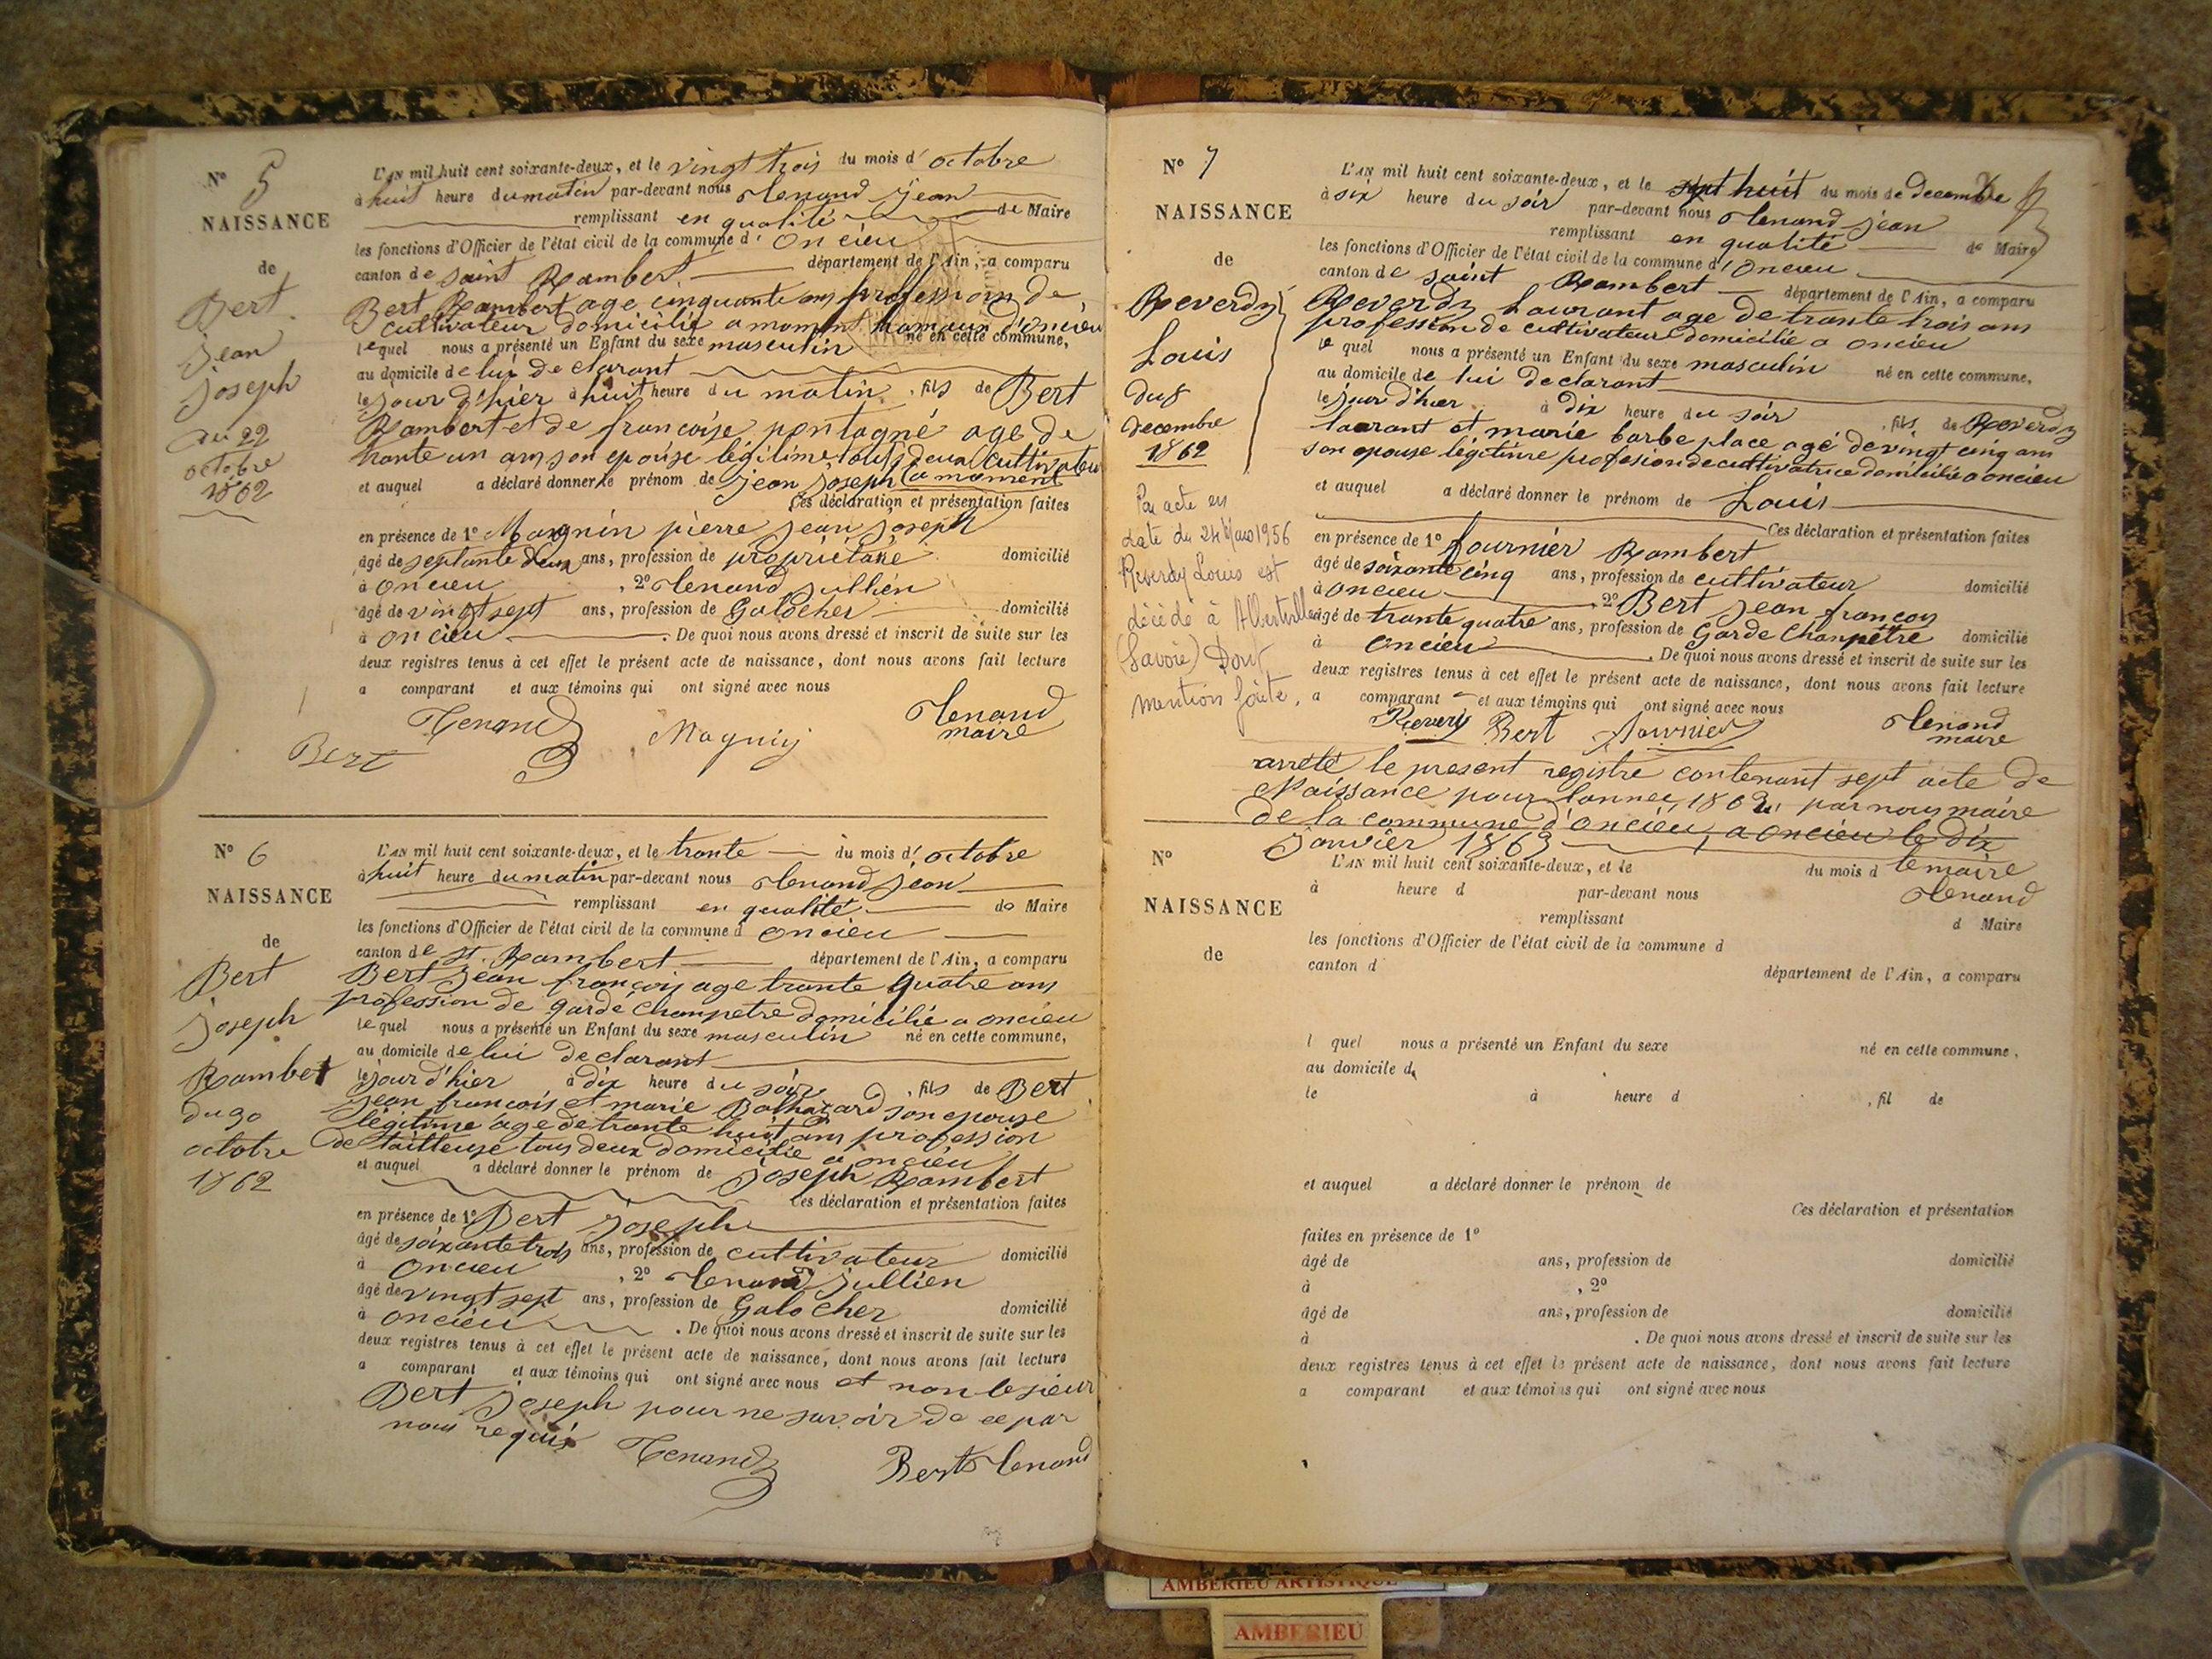 N° 5
NAISSANCE
de
Bert
jean
joseph
du 22
octobre
1862
L'AN mil huit cent soixante-deux, et le vingt trois du mois d' octobre
à huit heure du matin par-devant nous Tenand jean
remplissant en qualité de Maire
les fonctions d'Officier de l'état civil de la commune d' oncieu
canton de saint Rambert département de l'Ain, a comparu
Bert Rambert age cinquante ans profession de
cultivateur domicilié a moment hamaux d'oncieu
lequel nous a présenté un Enfant du sexe masculin né en cette commune,
au domicile de lui declarant
le jour d'hier à huit heure du matin, fils de Bert
Rambert et de francoise pontagné age de
trante un ans son epouse légitime tous deux cultivateur
et auquel a déclaré donner le prénom de jean joseph a moment
Ces déclaration et présentation faites
en présence de 1° Magnin pierre jean joseph
âgé de septante deux ans, profession de propriétaire domicilié
à oncieu, 2° Tenand jullien
âgé de vingt sept ans, profession de Galocher domicilié
à oncieu. De quoi nous avons dressé et inscrit de suite sur les
deux registres tenus à cet effet le présent acte de naissance, dont nous avons fait lecture
a comparant et aux témoins qui ont signé avec nous
Tenand Magnin Tenand
maire
Bert
N° 6
NAISSANCE
de
Bert
joseph
Rambert
du 30
octobre
1862
L'AN mil huit cent soixante-deux, et le trante du mois d' octobre
à huit heure du matin par-devant nous Tenand jean
remplissant en qualité de Maire
les fonctions d'Officier de l'état civil de la commune d oncieu
canton de st. Rambert département de l'Ain, a comparu
Bert jean françois age trante quatre ans
profession de garde champetre domicilié a oncieu
lequel nous a présenté un Enfant du sexe masculin né en cette commune,
au domicile de lui declarant
le jour d'hier à dix heure du soire, fils de Bert
jean francois et marie Balthazard son epouse
légitime age de trante huit ans profession
de tailleuse tous deux domicilie a oncieu
et auquel a déclaré donner le prénom de joseph Rambert
Ces déclaration et présentation faites
en présence de 1° Bert joseph
âgé de soixante trois ans, profession de cultivateur domicilié
à oncieu, 2° Tenand jullien
âgé de vingt sept ans, profession de Galocher domicilié
à oncieu. De quoi nous avons dressé et inscrit de suite sur les
deux registres tenus à cet effet le présent acte de naissance, dont nous avons fait lecture
a comparant et aux témoins qui ont signé avec nous et non le sieur
Bert joseph pour ne savoir de ce par
nous requis
Tenand Bert Tenand
N° 7
NAISSANCE
de
Reverdy
Louis
du 8
decembre
1862
Par acte en
date du 24 Mars 1956
Reverdy Louis est
décédé à Albertville
(Savoie) Dont
mention faite.
L'AN mil huit cent soixante-deux, et le huit du mois de decembre
à six heure du soir par-devant nous Tenand jean
remplissant en qualité de Maire
les fonctions d'Officier de l'état civil de la commune d' oncieu
canton de saint Rambert département de l'Ain, a comparu
Reverdy Laurant age de trante trois ans
profession de cultivateur domicilié a oncieu
le quel nous a présenté un Enfant du sexe masculin né en cette commune,
au domicile de lui declarant
le jour d'hier à dix heure du soir, fils de Reverdy
laurant et marie barbe place agé de vingt cinq ans
son epouse légitime profesion de cultivatrice domicilié a oncieu
et auquel a déclaré donner le prénom de Louis
Ces déclaration et présentation faites
en présence de 1° fournier Rambert
âgé de soixante cinq ans, profession de cultivateur domicilié
à oncieu, 2° Bert jean françois
âgé de trante quatre ans, profession de Garde Chanpêtre domicilié
à oncieu. De quoi nous avons dressé et inscrit de suite sur les
deux registres tenus à cet effet le présent acte de naissance, dont nous avons fait lecture
a comparant et aux témoins qui ont signé avec nous
Revery Bert fournier Tenand
maire
arrêté le present registre contenant sept acte de
Naissance pour lannee 1862 par nous maire
de la commune d'oncieu, a oncieu le dix
janvier 1863
le maire
Tenand
N°
NAISSANCE
de
L'AN mil huit cent soixante-deux, et le du mois d
à heure d par-devant nous
remplissant d Maire
les fonctions d'Officier de l'état civil de la commune d
canton d département de l'Ain, a comparu
l quel nous a présenté un Enfant du sexe né en cette commune,
au domicile d
le à heure d, fil de
et auquel a déclaré donner le prénom de
Ces déclaration et présentation
faites en présence de 1°
âgé de ans, profession de domicilié
à, 2°
âgé de ans, profession de domicilié
à. De quoi nous avons dressé et inscrit de suite sur les
deux registres tenus à cet effet le présent acte de naissance, dont nous avons fait lecture
a comparant et aux témoins qui ont signé avec nous
AMBERIEU ARTISTIQUE
AMBERIEU